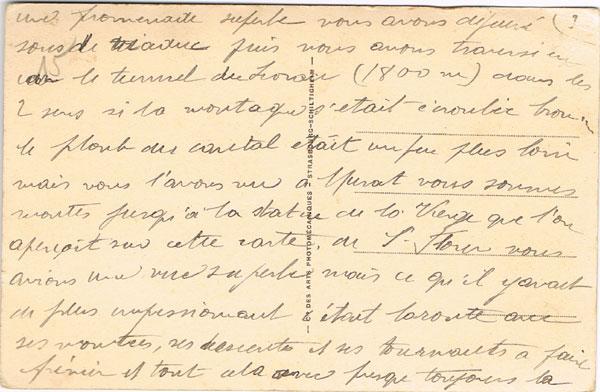 une promenade superbe nous avons déjeuné (?
sous le viaduc puis nous avons traversé en
15
le tunnel du Lioran (1800 m) dans les
2 sens si la montagne s'était écroulée
le plomb du cantal était un peu plus loin
mais nous l'avons vu à Murat nous sommes
montés jusqu'à la statue de la Vierge que l'on
aperçoit sur cette carte, de St Flour nous
avions une vue superbe mais ce qu'il y avait
de plus impressionnant était la route avec
ses montées, ses descentes et ses tournants à faire
frémir et tout cela avec presque toujours la
CIE DES ARTS PHOTOMÉCANIQUES - STRASBOURG-SCHILTIGHEIM